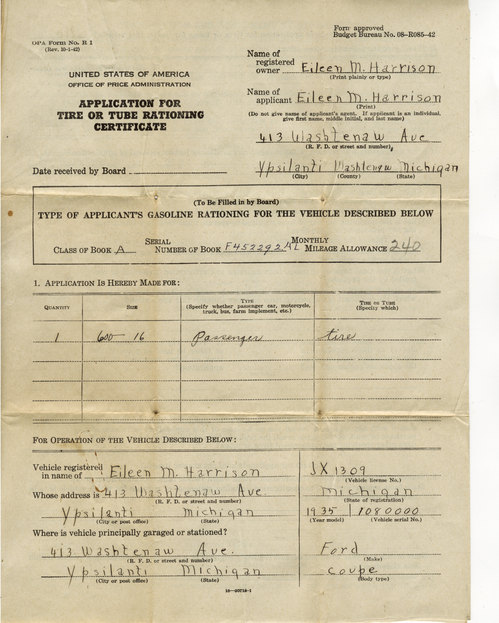 Form approved
Budget Bureau No. 08-R085-42
OPA Form No. R 1
(Rev. 10-1-42)
UNITED STATES OF AMERICA
OFFICE OF PRICE ADMINISTRATION
APPLICATION FOR
TIRE OR TUBE RATIONING
CERTIFICATE
Date received by Board
Name of
registered
owner Eileen M. Harrison
(Print plainly or type)
Name of
applicant Eileen M. Harrison
(Print)
(Do not give name of applicant's agent. If applicant is an individual,
give first name, middle initial, and last name)
413 Washtenaw Ave
(R. F. D. or street and number)
Ypsilanti Washtenaw Michigan
(City) (County) (State)
(To Be Filled in by Board)
TYPE OF APPLICANT'S GASOLINE RATIONING FOR THE VEHICLE DESCRIBED BELOW
CLASS OF BOOK A SERIAL NUMBER OF BOOK MONTHLY MILEAGE ALLOWANCE 240
1. APPLICATION IS HEREBY MADE FOR:
QUANTITY SIZE TYPE (Specify whether passenger car, motorcycle, truck, bus, farm implement, etc.) TIRE OR TUBE (Specify which)
1 600 16 Passenger tire
FOR OPERATION OF THE VEHICLE DESCRIBED BELOW:
Vehicle registered
in name of Eileen M. Harrison
Whose address is 413 Washtenaw Ave.
(R. F. D. or street and number)
Ypsilanti Michigan
(City or post office) (State)
Where is vehicle principally garaged or stationed?
413 Washtenaw Ave.
(R. F. D. or street and number)
Ypsilanti Michigan
(City or post office) (State)
JX 1309
(Vehicle license No.)
Michigan
(State of registration)
1935 1080000
(Year model) (Vehicle serial No.)
Ford
(Make)
coupe
(Body type)
16-30718-1